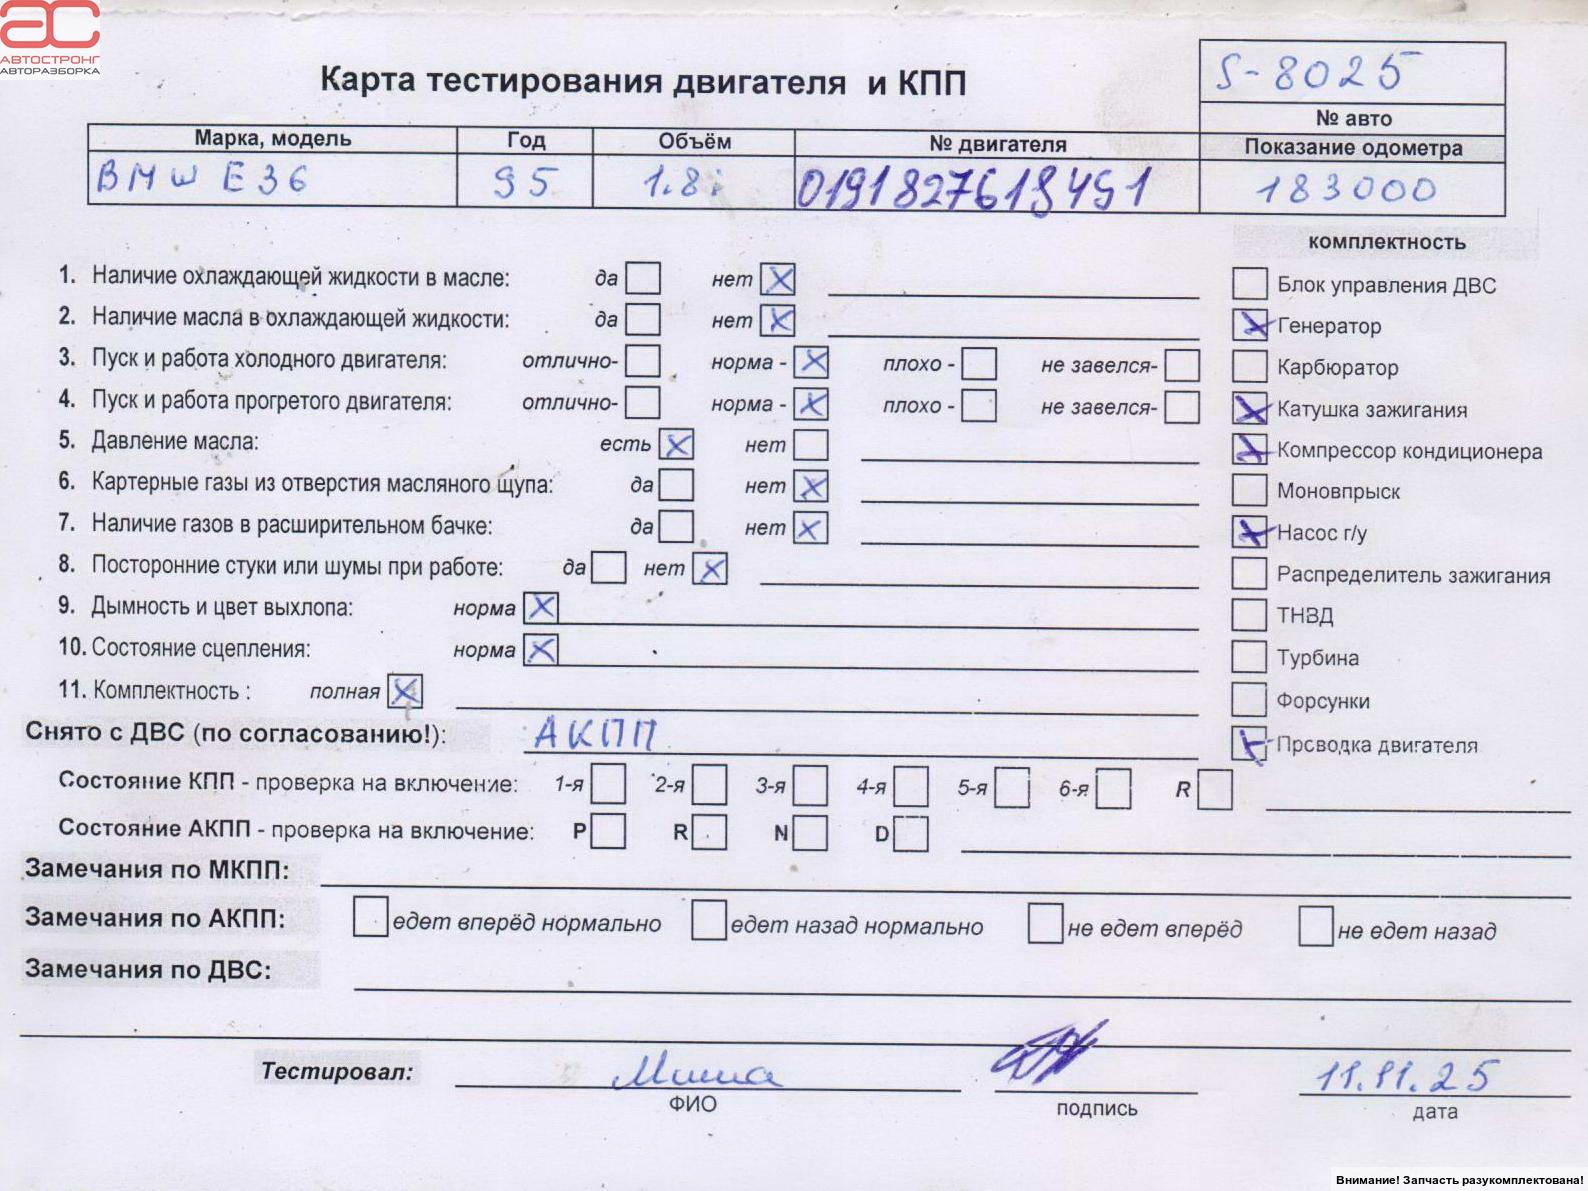 АС
АВТОСТРОНГ
АВТОРАЗБОРКА
Карта тестирования двигателя и КПП
S-8025
№ авто
Марка, модель Год Объём № двигателя Показание одометра
BMW E36 95 1.8i 0191827619491 183000
комплектность
1. Наличие охлаждающей жидкости в масле: да нет X
Блок управления ДВС
2. Наличие масла в охлаждающей жидкости: да нет X
X Генератор
3. Пуск и работа холодного двигателя: отлично- норма - X плохо - не завелся-
Карбюратор
4. Пуск и работа прогретого двигателя: отлично- норма - X плохо - не завелся-
X Катушка зажигания
5. Давление масла: есть X нет
X Компрессор кондиционера
6. Картерные газы из отверстия масляного щупа: да нет X
Моновпрыск
7. Наличие газов в расширительном бачке: да нет X
X Насос г/у
8. Посторонние стуки или шумы при работе: да нет X
Распределитель зажигания
9. Дымность и цвет выхлопа: норма X
ТНВД
10. Состояние сцепления: норма X
Турбина
11. Комплектность : полная X
Форсунки
Снято с ДВС (по согласованию!): АКПП
X Проводка двигателя
Состояние КПП - проверка на включение: 1-я 2-я 3-я 4-я 5-я 6-я R
Состояние АКПП - проверка на включение: P R N D
Замечания по МКПП:
Замечания по АКПП: едет вперёд нормально едет назад нормально не едет вперёд не едет назад
Замечания по ДВС:
Тестировал: Миша 11.11.25
ФИО подпись дата
Внимание! Запчасть разукомплектована!